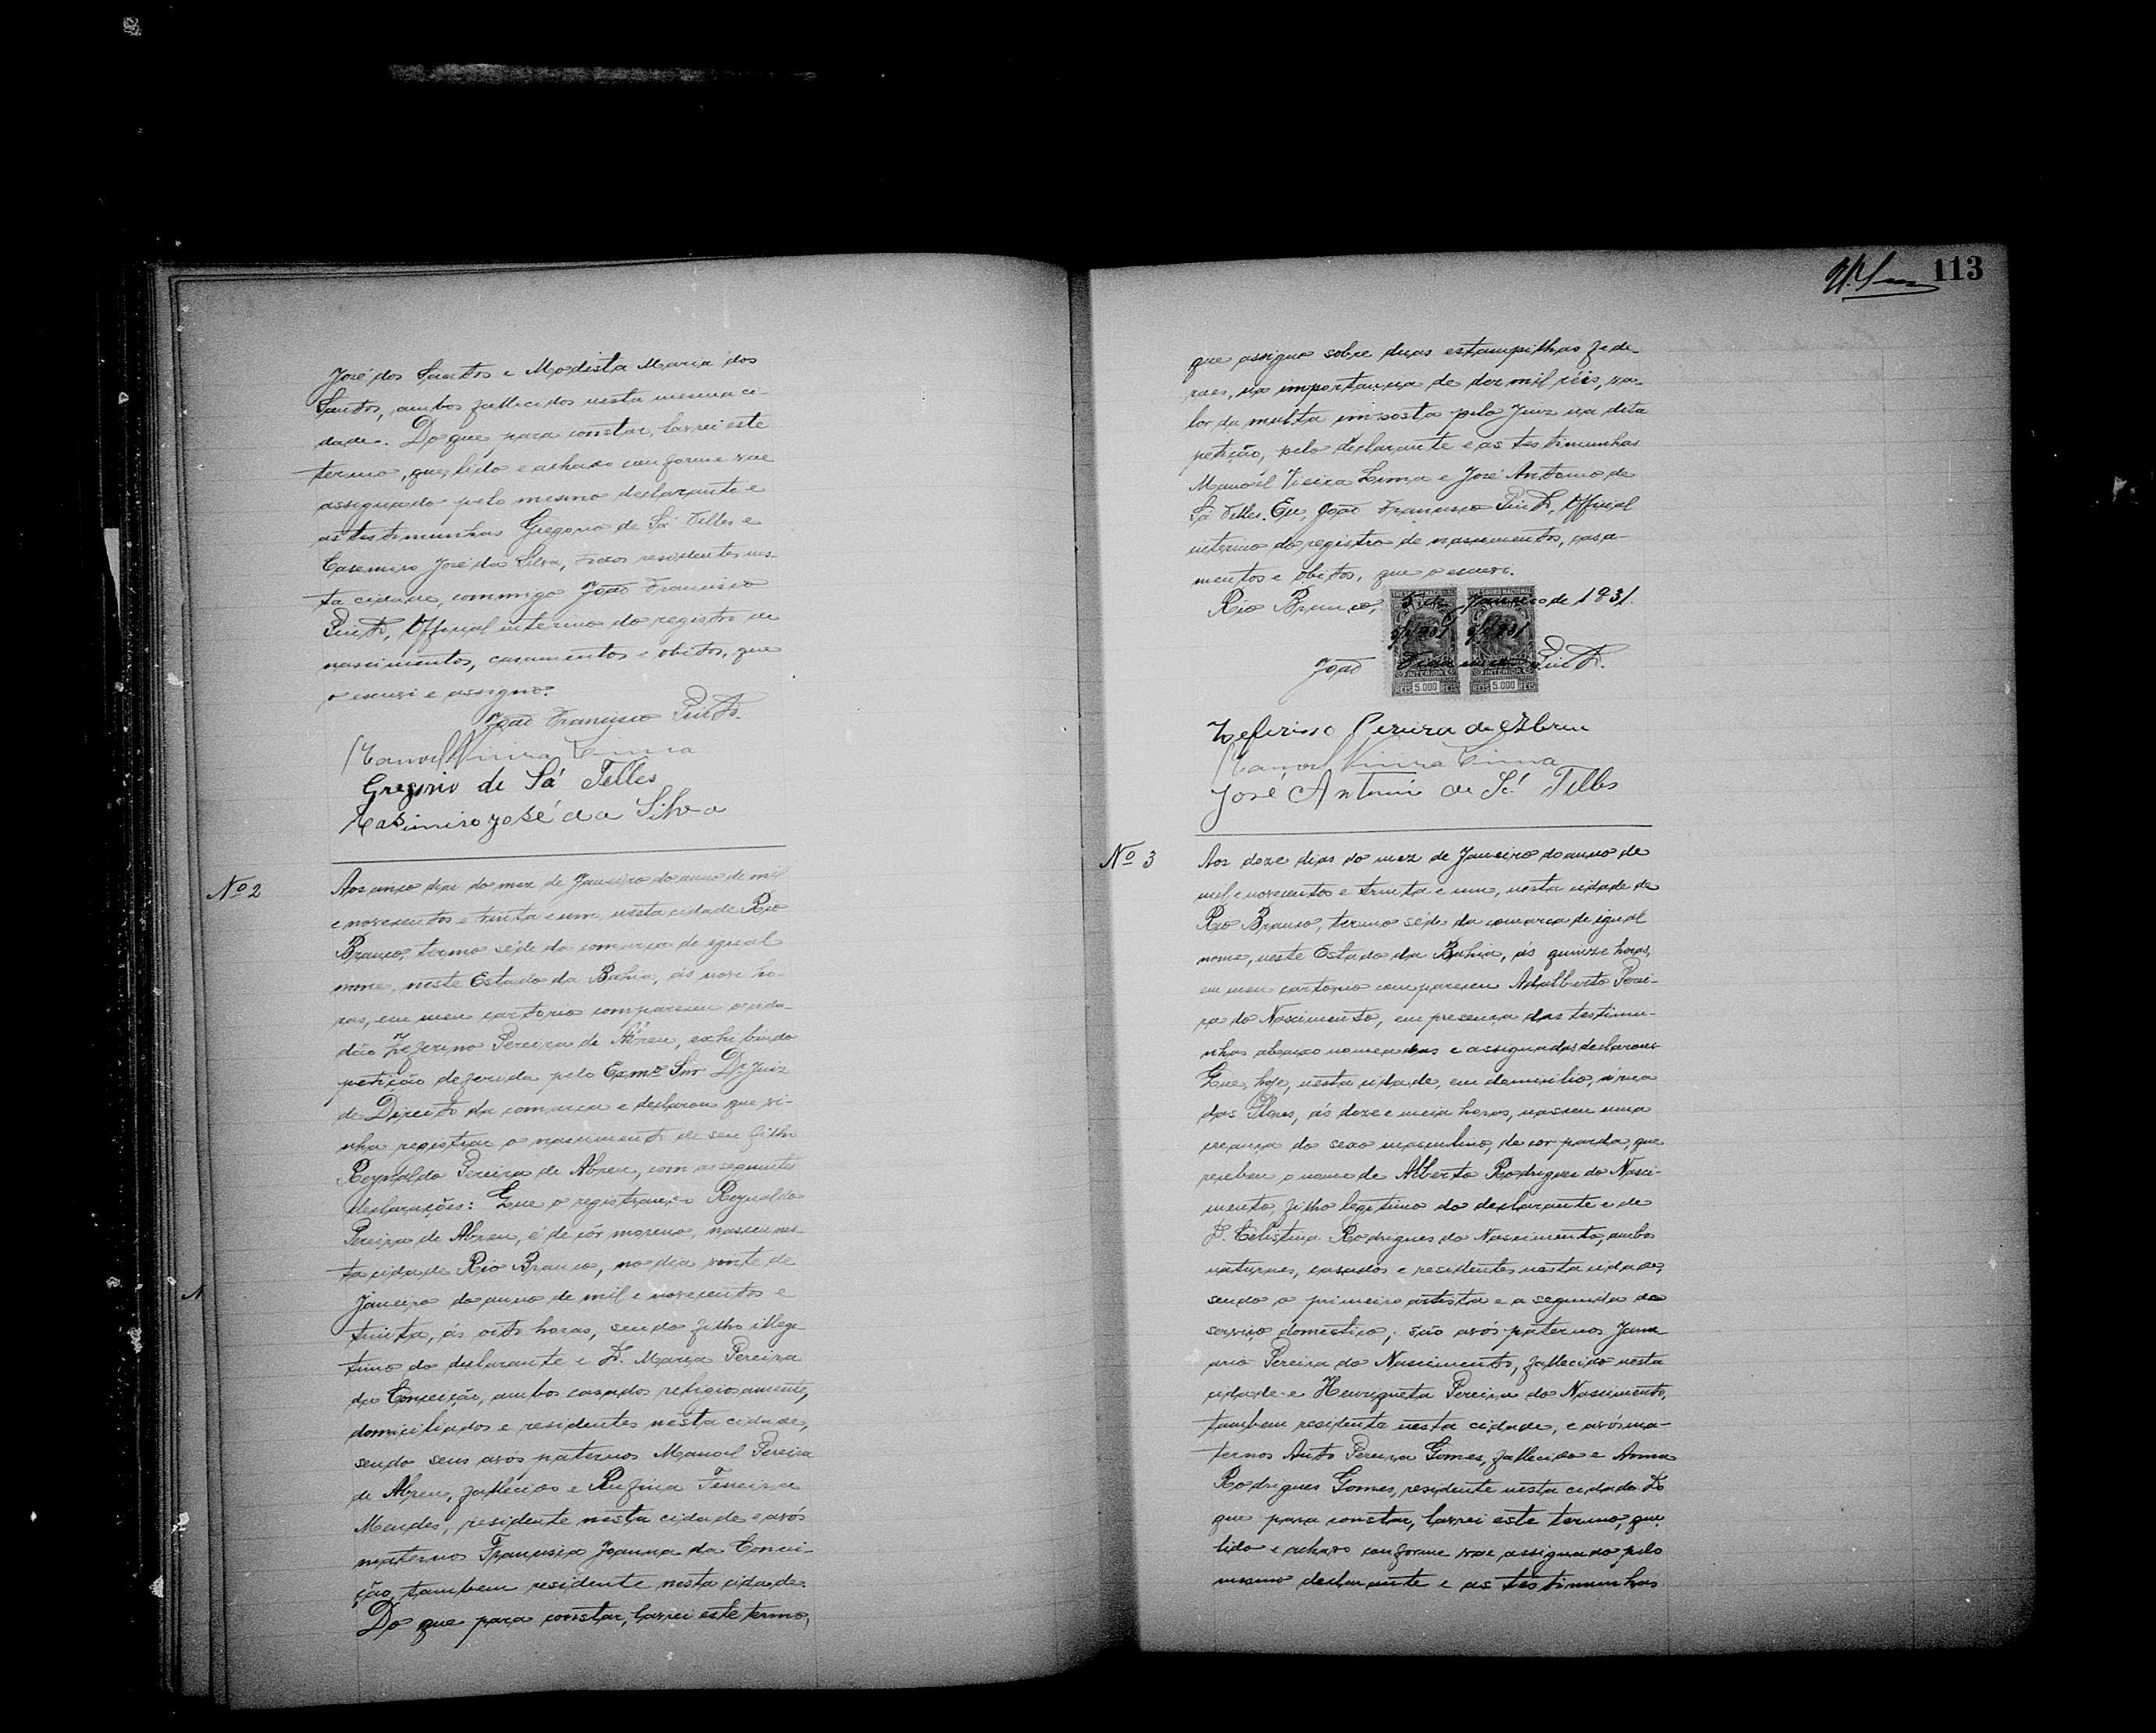 José dos Santos e Modista Maria dos
Santos, ambos fallecidos nesta mesma ci-
dade. Do que para constar, lavrei este
termo, que, lido e achado conforme vae
assignado pelo mesmo declarante e
as testimunhas Gregorio de Sá Telles e
Casemiro José da Silva, todos residentes nes-
ta cidade, commigo João Francisco
Pinto, Official interino do registro de
nascimentos, casamentos e obitos, que
o escrevi e assigno.
João Francisco Pinto.
Manoel Vieira Lima
Gregorio de Sá Telles
Casimiro José da Silva
Nº 2
Aos cinco dias do mez de Janeiro do anno de mil
e novecentos e trinta e um, nesta cidade Rio
Branco, termo séde da comarca de igual
nome, neste Estado da Bahia, ás nove ho-
ras, em meu cartorio compareceu o cida-
dão Zeferino Pereira de Abreu, exhibindo
petição deferida pelo Exmº Snr Dr. Juiz
de Direito da comarca e declarou que vi-
nha registrar o nascimento de seu filho
Reynaldo Pereira de Abreu, com as seguintes
declarações: Que o registrando Reynaldo
Pereira de Abreu, é de côr moreno, nasceu nes-
ta cidade Rio Branco, no dia vinte de
Janeiro do anno de mil e novecentos e
trinta, ás oito horas, sendo filho illegi-
timo do declarante e D. Maria Pereira
da Conceição, ambos casados religiosamente,
domiciliados e residentes nesta cidade,
sendo seus avós paternos Manoel Pereira
de Abreu, fallecido e Rufina Ferreira
Mendes, residente nesta cidade e avós
maternos Francisca Joanna da Concei-
ção, tambem residente nesta cidade.
Do que para constar, lavrei este termo,
113
que assigno sobre duas estampilhas fede-
raes, na importancia de dez mil réis, va-
lor da multa imposta pelo Juiz na dita
petição, pelo declarante e as testimunhas
Manoel Vieira Lima e José Antonio de
Sá Telles. Eu, João Francisco Pinto, Official
interino do registro de nascimentos, casa-
mentos e obitos, que o escrevi.
Rio Branco, 5 de Janeiro de 1931.
João Francisco Pinto.
5.000 REIS 5.000 REIS
Zeferino Pereira de Abreu
Manoel Vieira Lima
José Antonio de Sá Telles
Nº 3
Aos doze dias do mez de Janeiro do anno de
mil e novecentos e trinta e um, nesta cidade de
Rio Branco, termo séde da comarca de igual
nome, neste Estado da Bahia, ás quinze horas,
em meu cartorio compareceu Adalberto Perei-
ra do Nascimento, em presença das testimu-
nhas abaixo nomeadas e assignadas declarou:
Que, hoje, nesta cidade, em domicilio, á rua
das Flores, ás doze e meia horas, nasceu uma
creança do sexo masculino, de cor parda, que
recebeu o nome de Alberto Rodrigues do Nasci-
mento, filho legitimo do declarante e de
D. Celistina Rodrigues do Nascimento, ambos
naturaes, casados e residentes nesta cidade,
sendo o primeiro artista e a segunda de
serviço domestico; são avós paternos Janu-
ario Pereira do Nascimento, fallecido nesta
cidade e Henriqueta Pereira do Nascimento,
tambem residente nesta cidade, e avós ma-
ternos Pereira Gomes, fallecido e Anna
Rodrigues Gomes, residente nesta cidade. Do
que para constar, lavrei este termo, que
lido e achado conforme vae assignado pelo
mesmo declarante e as testimunhas